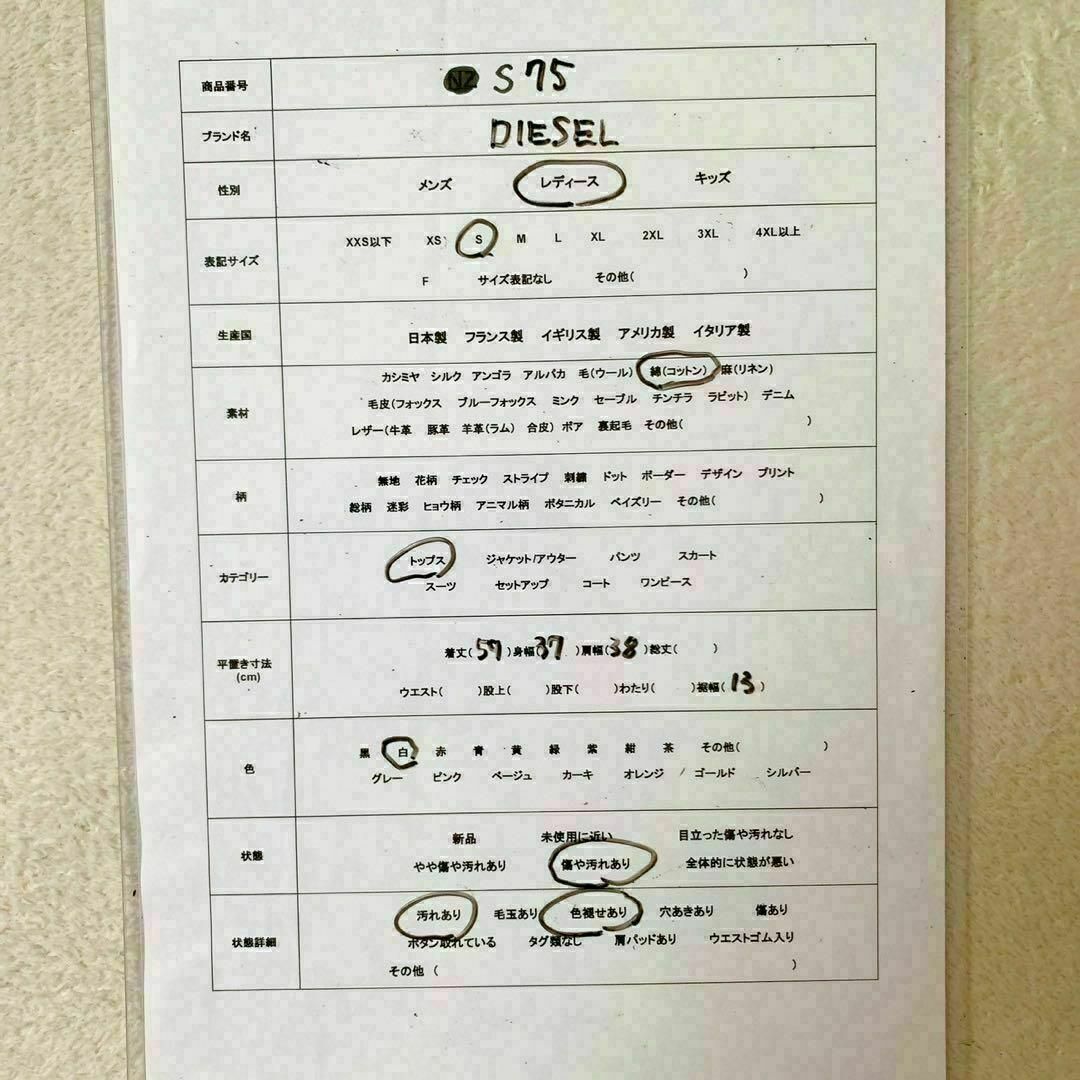 商品番号 NZ S75
ブランド名 DIESEL
性別 メンズ レディース キッズ
表記サイズ XXS以下 XS S M L XL 2XL 3XL 4XL以上
F サイズ表記なし その他( )
生産国 日本製 フランス製 イギリス製 アメリカ製 イタリア製
素材 カシミヤ シルク アンゴラ アルパカ 毛(ウール) 綿(コットン) 麻(リネン)
毛皮(フォックス ブルーフォックス ミンク セーブル チンチラ ラビット) デニム
レザー(牛革 豚革 羊革(ラム) 合皮) ボア 裏起毛 その他( )
柄 無地 花柄 チェック ストライプ 刺繍 ドット ボーダー デザイン プリント
総柄 迷彩 ヒョウ柄 アニマル柄 ボタニカル ペイズリー その他( )
カテゴリー トップス ジャケット/アウター パンツ スカート
スーツ セットアップ コート ワンピース
平置き寸法 (cm) 着丈(57)身幅(37)肩幅(38)総丈( )
ウエスト( )股上( )股下( )わたり( )裾幅(13)
色 黒 白 赤 青 黄 緑 紫 紺 茶 その他( )
グレー ピンク ベージュ カーキ オレンジ / ゴールド シルバー
状態 新品 未使用に近い 目立った傷や汚れなし
やや傷や汚れあり 傷や汚れあり 全体的に状態が悪い
状態詳細 汚れあり 毛玉あり 色褪せあり 穴あきあり 傷あり
ボタン取れている タグ類なし 肩パッドあり ウエストゴム入り
その他 ( )